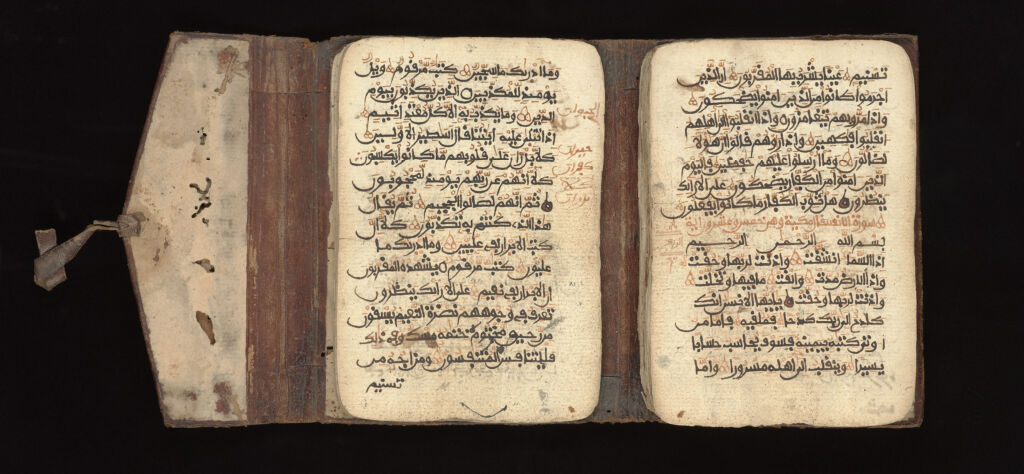 وما ادريك ما سجين كتب مرقوم ويل
يومئذ للمكذبين الذين يكذبون بيوم
الدين وما يكذب به الا كل معتد اثيم
اذا تتلى عليه ءايتنا قال اسطير الاولين
كلا بل ران على قلوبهم ما كانوا يكسبون
كلا انهم عن ربهم يومئذ لمحجوبون
ثم انهم لصالوا الجحيم ثم يقال
هذا الذي كنتم به تكذبون كلا ان
كتب الابرار لفي عليين وما ادريك ما
عليون كتب مرقوم يشهده المقربون
ان الابرار لفي نعيم على الارائك ينظرون
تعرف في وجوههم نضرة النعيم يسقون
من رحيق مختوم ختمه مسك وفي ذلك
فليتنافس المتنفسون ومزاجه من
تسنيم
تسنيم عينا يشرب بها المقربون ان الذين
اجرموا كانوا من الذين امنوا يضحكون
واذا مروا بهم يتغامزون واذا انقلبوا الى اهلهم
انقلبوا فكهين واذا راوهم قالوا ان هؤلا
لضالون وما ارسلوا عليهم حفظين فاليوم
الذين امنوا من الكفار يضحكون على الارائك
ينظرون هل ثوب الكفار ما كانوا يفعلون
بسم الله الرحمن الرحيم
اذا السما انشقت واذنت لربها وحقت
واذا الارض مدت والقت ما فيها وتخلت
واذنت لربها وحقت يايها الانسن انك
كادح الى ربك كدحا فملقيه فاما من
اوتي كتبه بيمينه فسوف يحاسب حسابا
يسيرا وينقلب الى اهله مسرورا واما